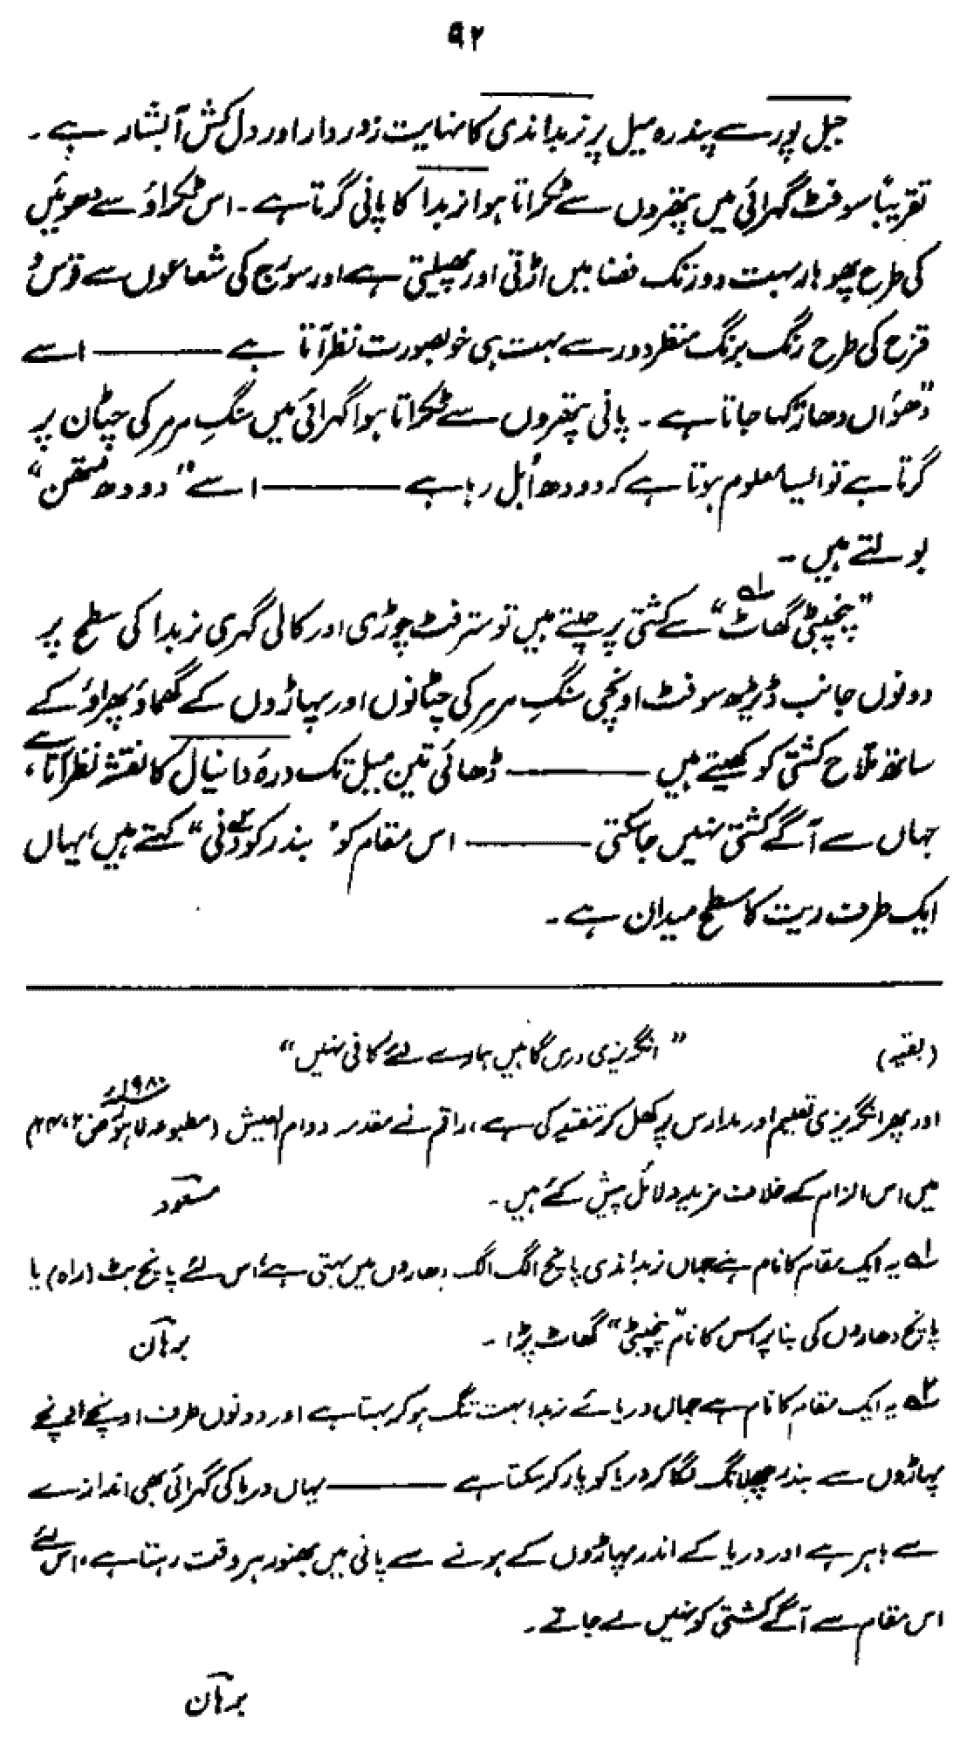 ۹۲
جبل پور سے پندرہ میل پر نربدا ندی کا نہایت زور دار اور دل کش آبشار ہے۔
تقریباً سو فٹ گہرائی میں پتھروں سے ٹکراتا ہوا نربدا کا پانی گرتا ہے۔ اس ٹکراؤ سے دھوئیں
کی طرح پھوہار بہت دور تک فضا میں اڑتی اور پھیلتی ہے اور سورج کی شعاعوں سے قوس و
قزح کی طرح رنگ برنگ منظر دور سے بہت ہی خوبصورت نظر آتا ہے ——— اسے
”دھؤاں دھار“ کہا جاتا ہے۔ پانی پتھروں سے ٹکراتا ہوا گہرائی میں سنگِ مرمر کی چٹان پر
گرتا ہے تو ایسا معلوم ہوتا ہے کہ دودھ اُبل رہا ہے ——— اسے ”دودھ متھن“
بولتے ہیں۔
”پنچپٹی گھاٹ“ ؎۱ سے کشتی پر چلتے ہیں تو ستر فٹ چوڑی اور کالی گہری نربدا کی سطح پر
دونوں جانب ڈیڑھ سو فٹ اونچی سنگِ مرمر کی چٹانوں اور پہاڑوں کے گھماؤ پھراؤ کے
ساتھ ملاح کشتی کو کھیتے ہیں ——— ڈھائی تین میل تک درۂ دانیال کا نقشہ نظر آتا ہے،
جہاں سے آگے کشتی نہیں جا سکتی ——— اس مقام کو ”بندر کودنی“ ؎۲ کہتے ہیں، یہاں
ایک طرف ریت کا سطح میدان ہے۔
(بقیہ) ”انگریزی درس گاہیں ہمارے لئے کافی نہیں“
اور پھر انگریزی تعلیم اور مدارس پر کھل کر تنقید کی ہے، راقم نے مقدمہ دوام العیش (مطبوعہ لاہور ۱۹۸۰ء ص
میں اس الزام کے خلاف مزید دلائل پیش کئے ہیں۔ مسعود
؎۱ یہ ایک مقام کا نام ہے جہاں نربدا ندی پانچ الگ الگ دھاروں میں بہتی ہے، اس لئے پانچ بٹ (راہ) یا
پانچ دھاروں کی بنا پر اس کا نام ”پنچپٹی“ گھاٹ پڑا۔ برہان
؎۲ یہ ایک مقام کا نام ہے جہاں دریائے نربدا بہت تنگ ہو کر بہتا ہے اور دونوں طرف اونچے اونچے
پہاڑوں سے بندر چھلانگ لگا کر دریا کو پار کر سکتا ہے ——— یہاں دریا کی گہرائی بھی اندازے
سے باہر ہے اور دریا کے اندر پہاڑوں کے ہونے سے پانی میں بھنور ہر وقت رہتا ہے، اس لئے
اس مقام سے آگے کشتی کو نہیں لے جاتے۔
برہان